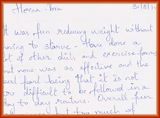 It was fun reducing weight without
having to starve. Have done a
lot of other diets and exercise forms
but none was as effective and the
best part being that it is not
so difficult to be followed in a
day to day routine. Overall fun
too much of